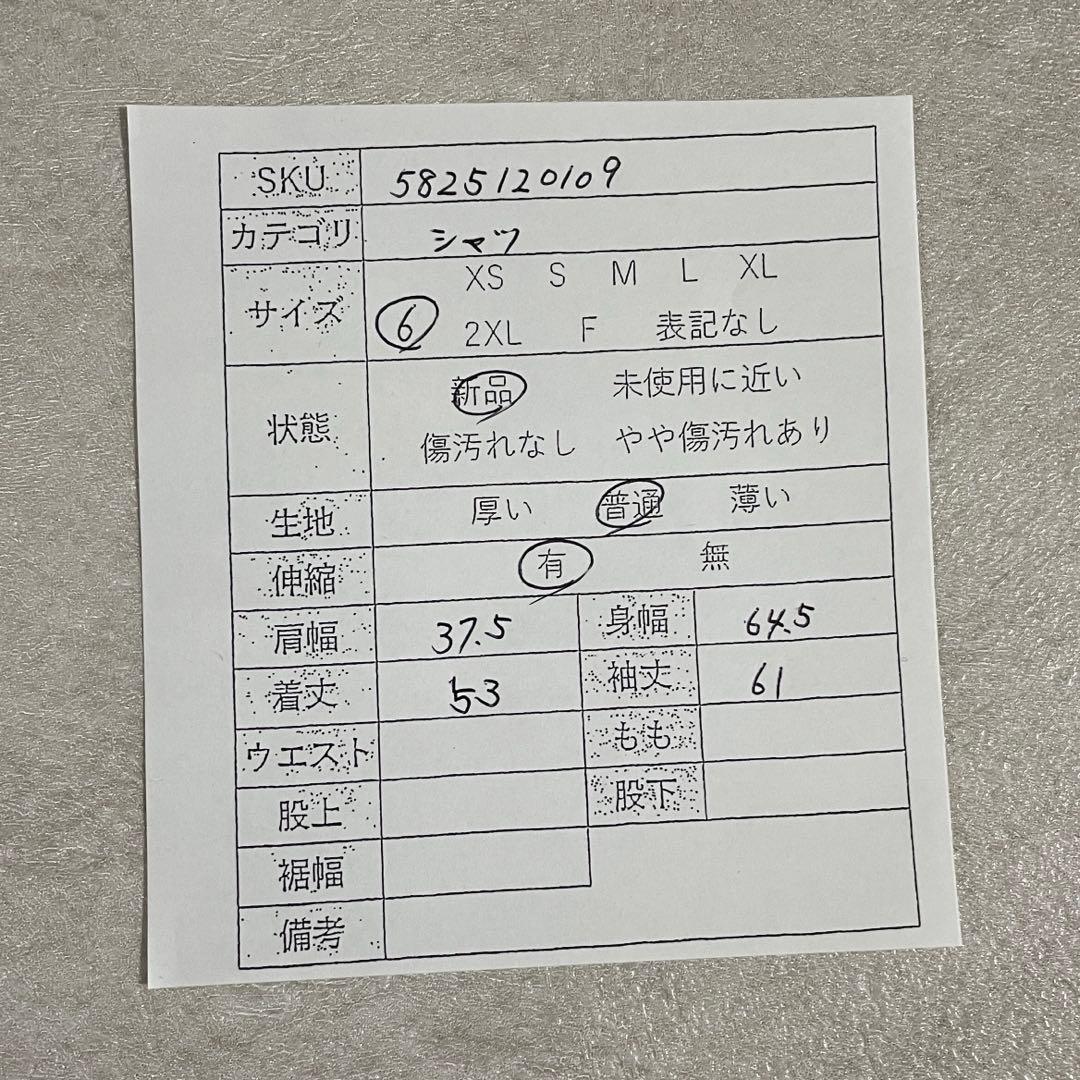 SKU 5825120109
カテゴリ シャツ
XS S M L XL
サイズ 6 2XL F 表記なし
新品 未使用に近い
状態
傷汚れなし やや傷汚れあり
生地 厚い 普通 薄い
伸縮 有 無
肩幅 37.5 身幅 64.5
着丈 53 袖丈 61
ウエスト もも
股上 股下
裾幅
備考